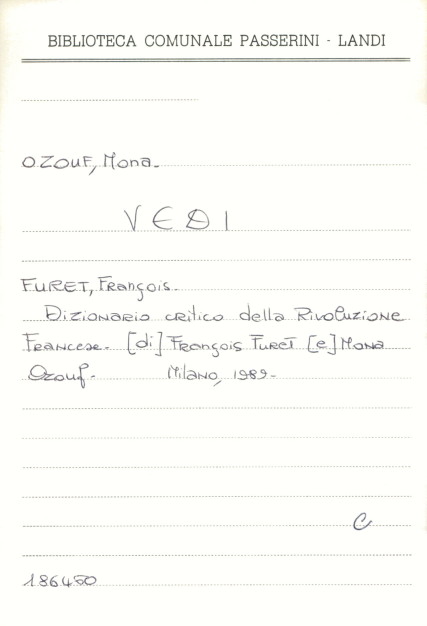 BIBLIOTECA COMUNALE PASSERINI - LANDI
OZOUF, Mona.
VEDI
FURET, François.
Dizionario critico della Rivoluzione
Francese. [di] François Furet [e] Mona
Ozouf. Milano, 1989.
C
186450